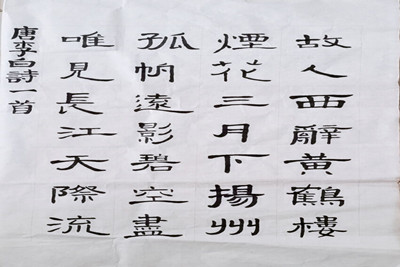 故人西辭黃鶴樓
煙花三月下揚州
孤帆遠影碧空盡
唯見長江天際流
唐李白詩一首